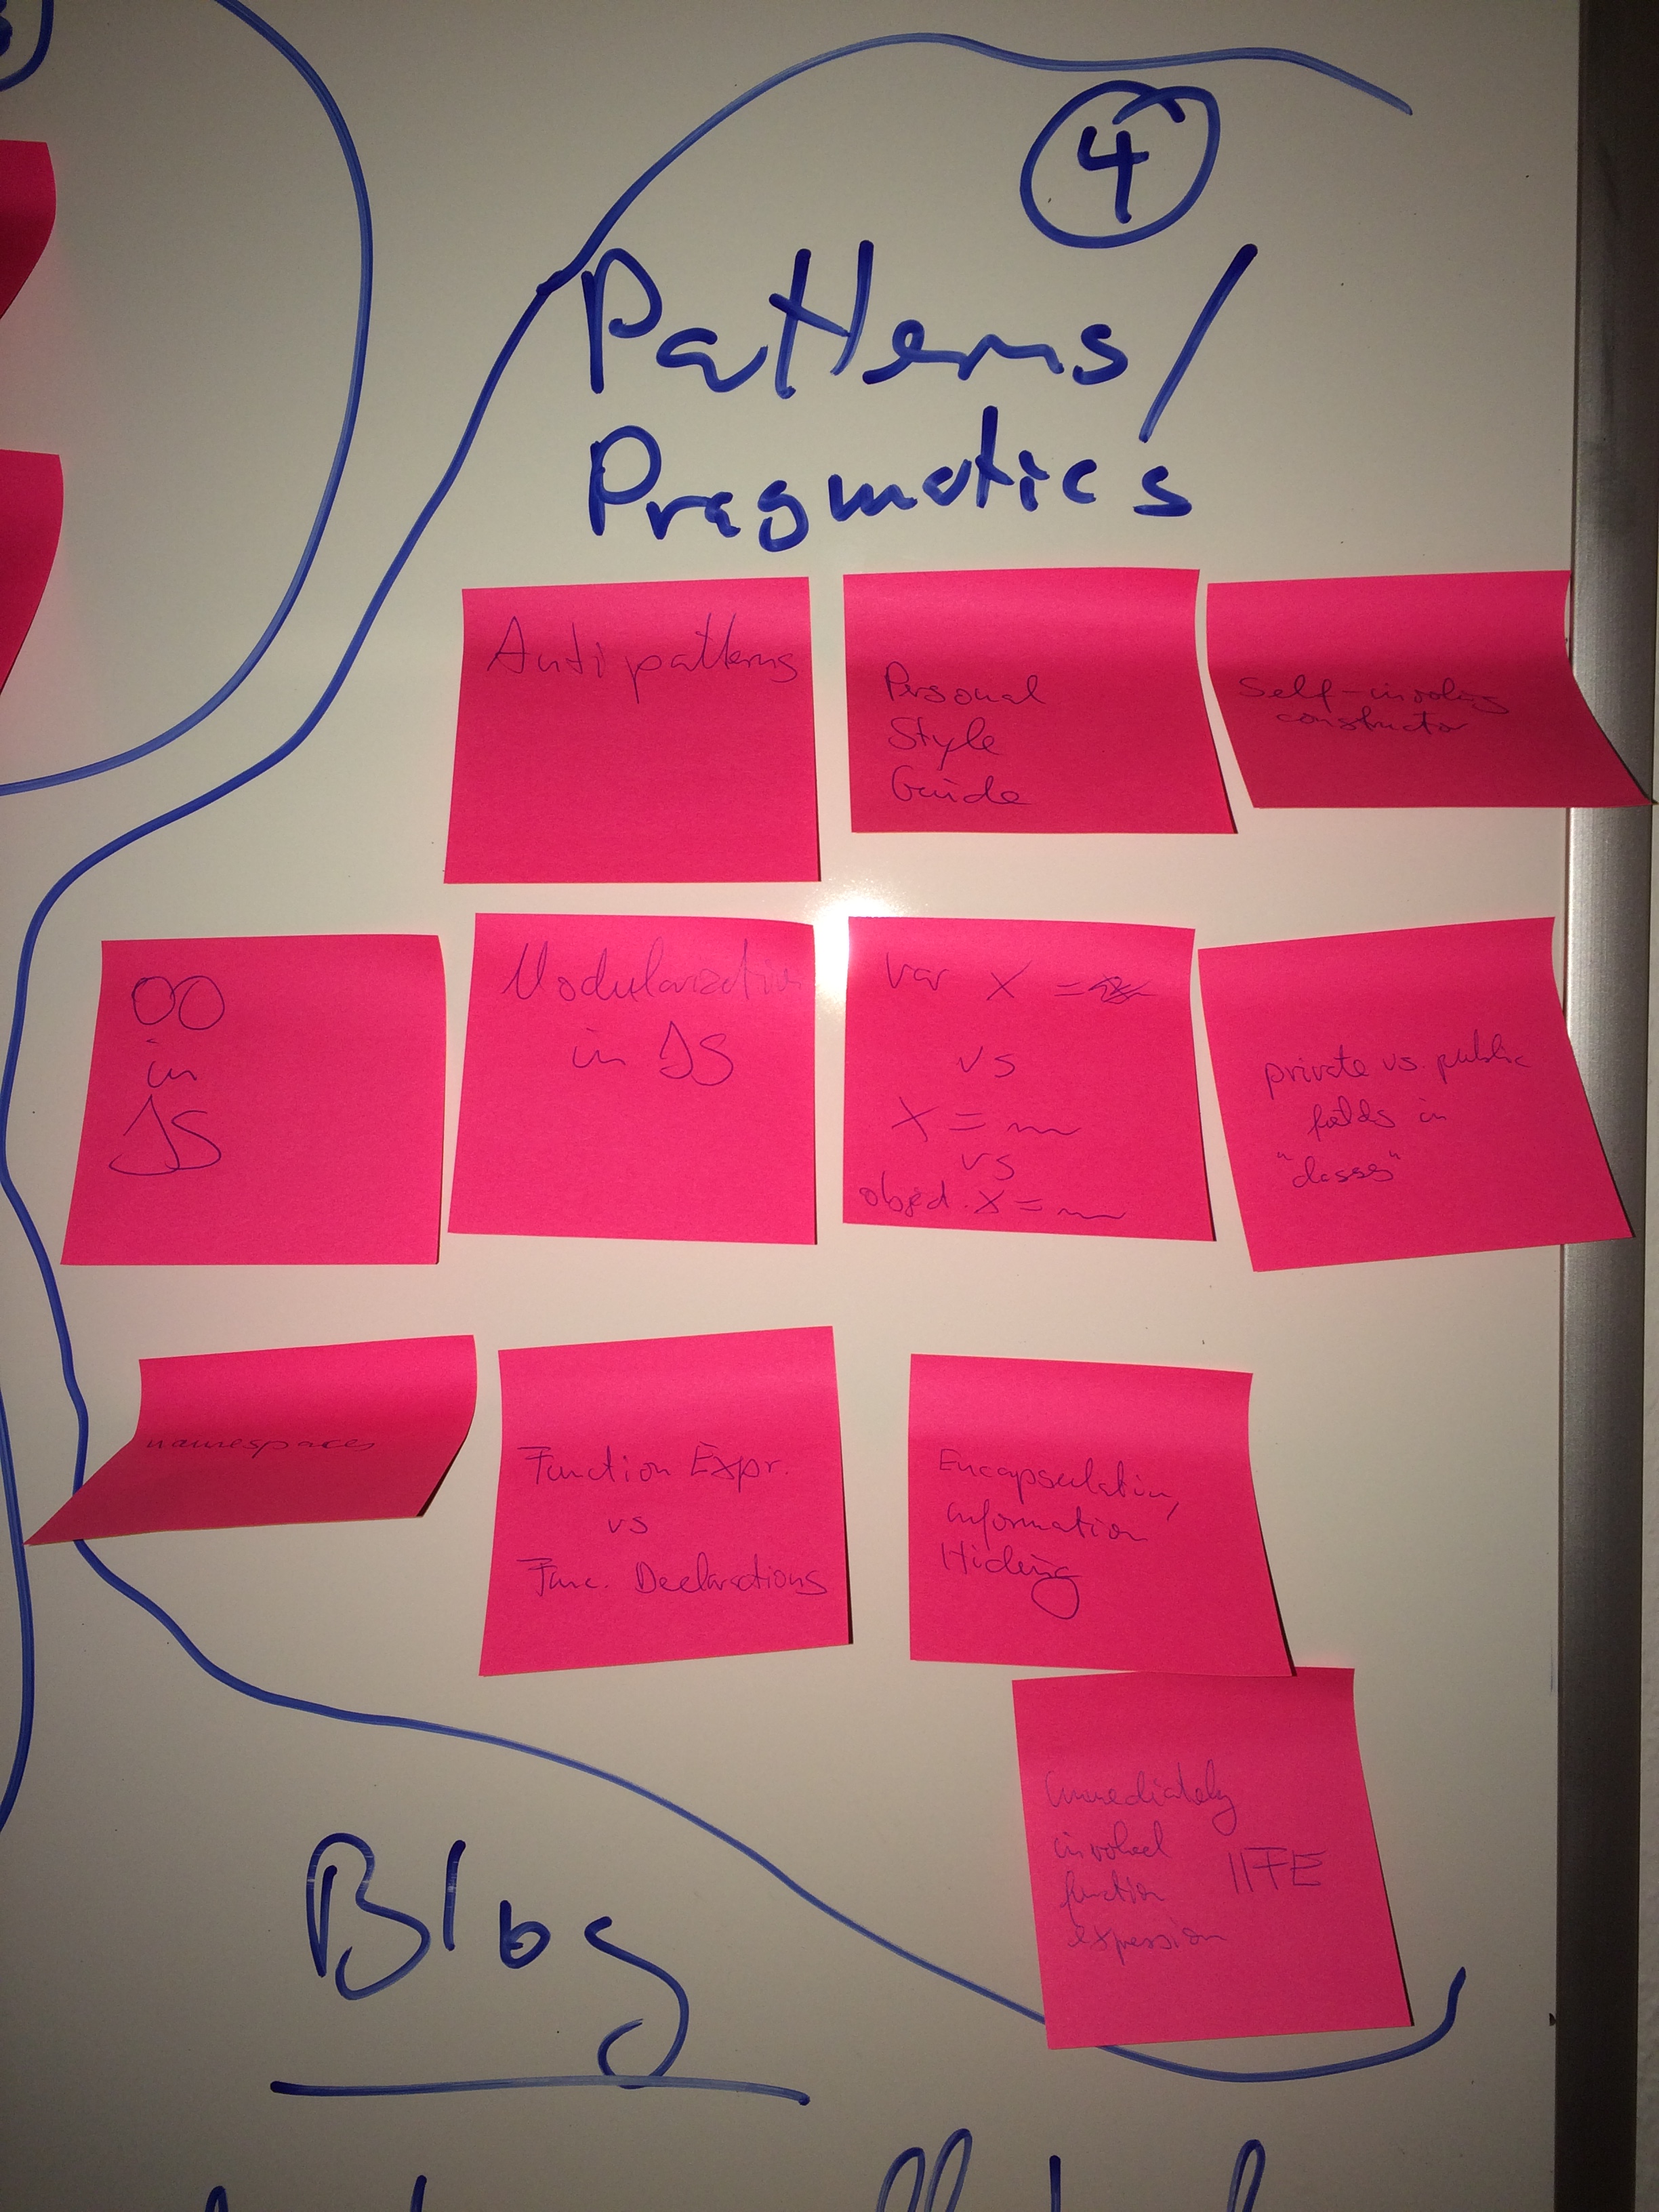 4
Patterns/
Pragmatics
Antipatterns
Personal
Style
Guide
Self-invoking
constructor
OO
in
JS
Modularization
in JS
var x =
vs
x =
vs
object.x =
private vs. public
fields in
"classes"
namespaces
Function Expr.
vs
Func. Declarations
Encapsulation,
Information
Hiding
Immediately
invoked
function IIFE
expression
Blog